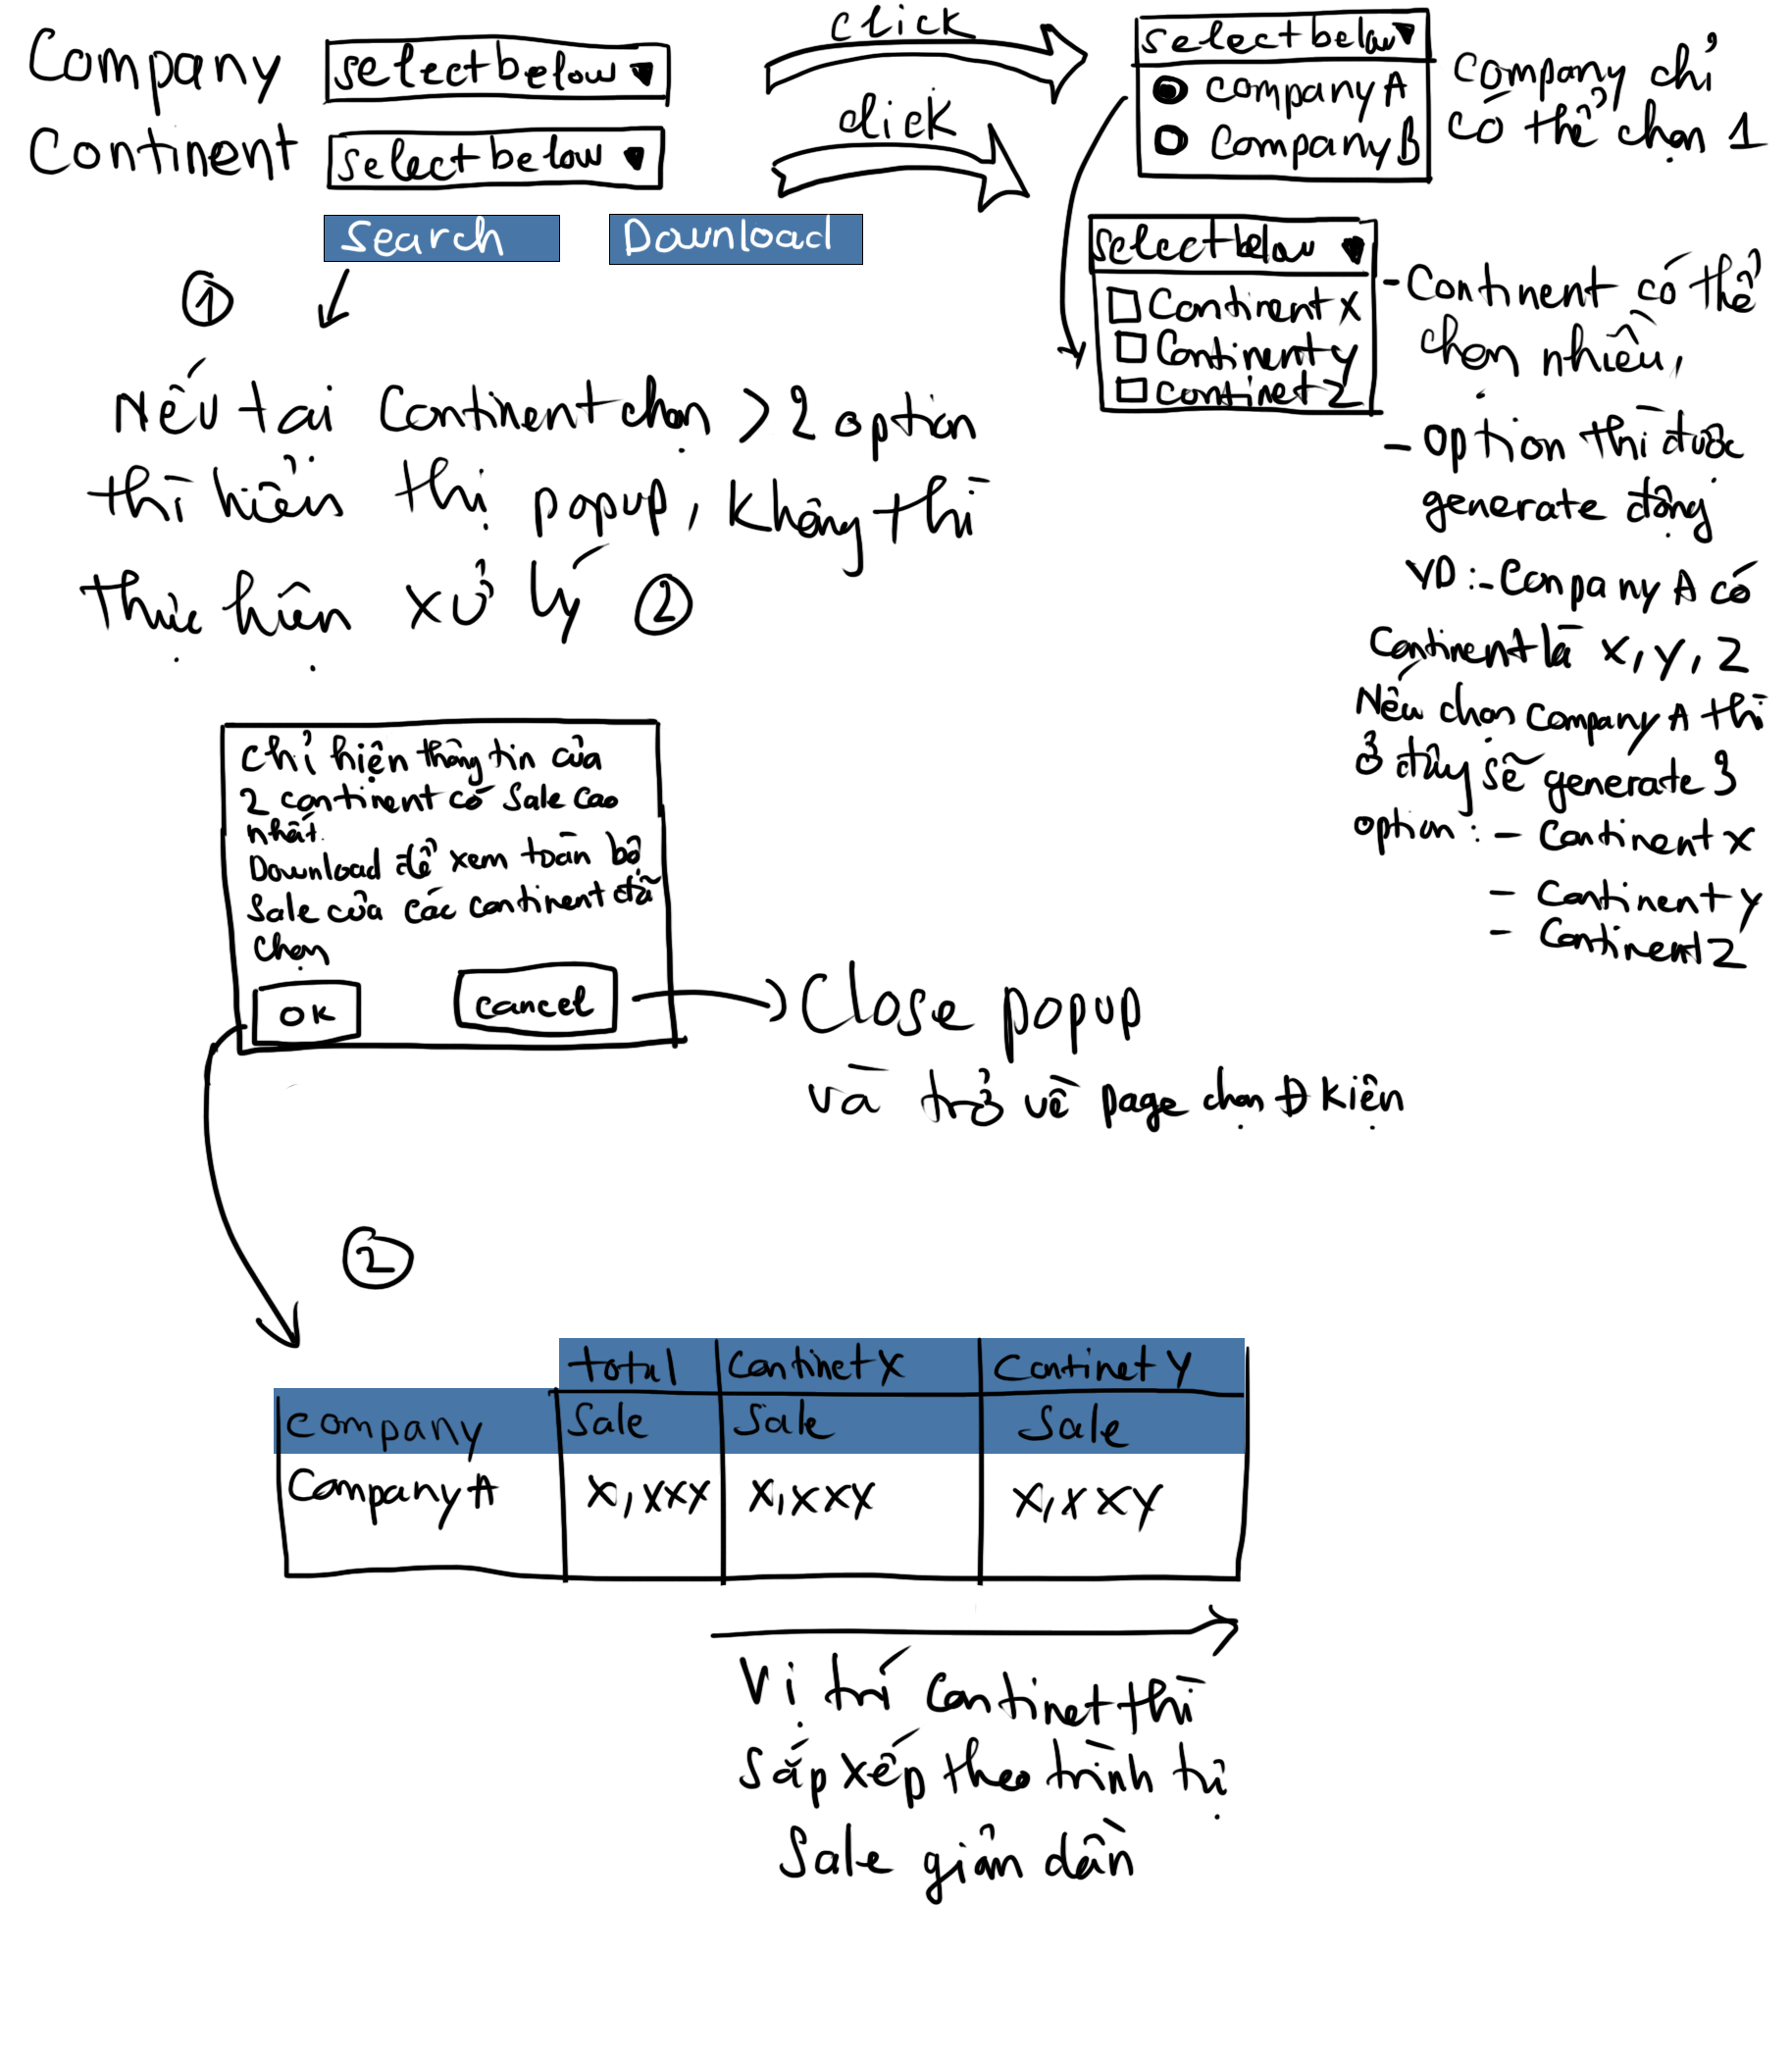 Company
select below
click
select below
company A
Company B
Company chỉ
có thể chọn 1
Continent
select below
click
Search
Download
select below
Continent X
Continent y
continet Z
- Continent có thể
chọn nhiều,
- Option thì được
generate động
VD: - Conpany A có
Continent là X, Y, Z
Nếu chọn Company A thì
ở đây sẽ generate 3
option: - Continent X
- Continent y
- Continent Z
1
Nếu tại Continent chọn > 2 option
thì hiển thị popup, không thì
thực hiện xử lý 2
chỉ hiện thông tin của
2 continent có Sale cao
nhất.
Download để xem toàn bộ
Sale của các continent đã
chọn
OK
Cancel
Close popup
và trở về page chọn Đ kiện
2
total
Continet X
Continet Y
Company
Sale
Sale
Sale
Company A
X,XXX
X,XXX
X,XXY
Vị trí continet thì
Sắp xếp theo trình tự
Sale giảm dần